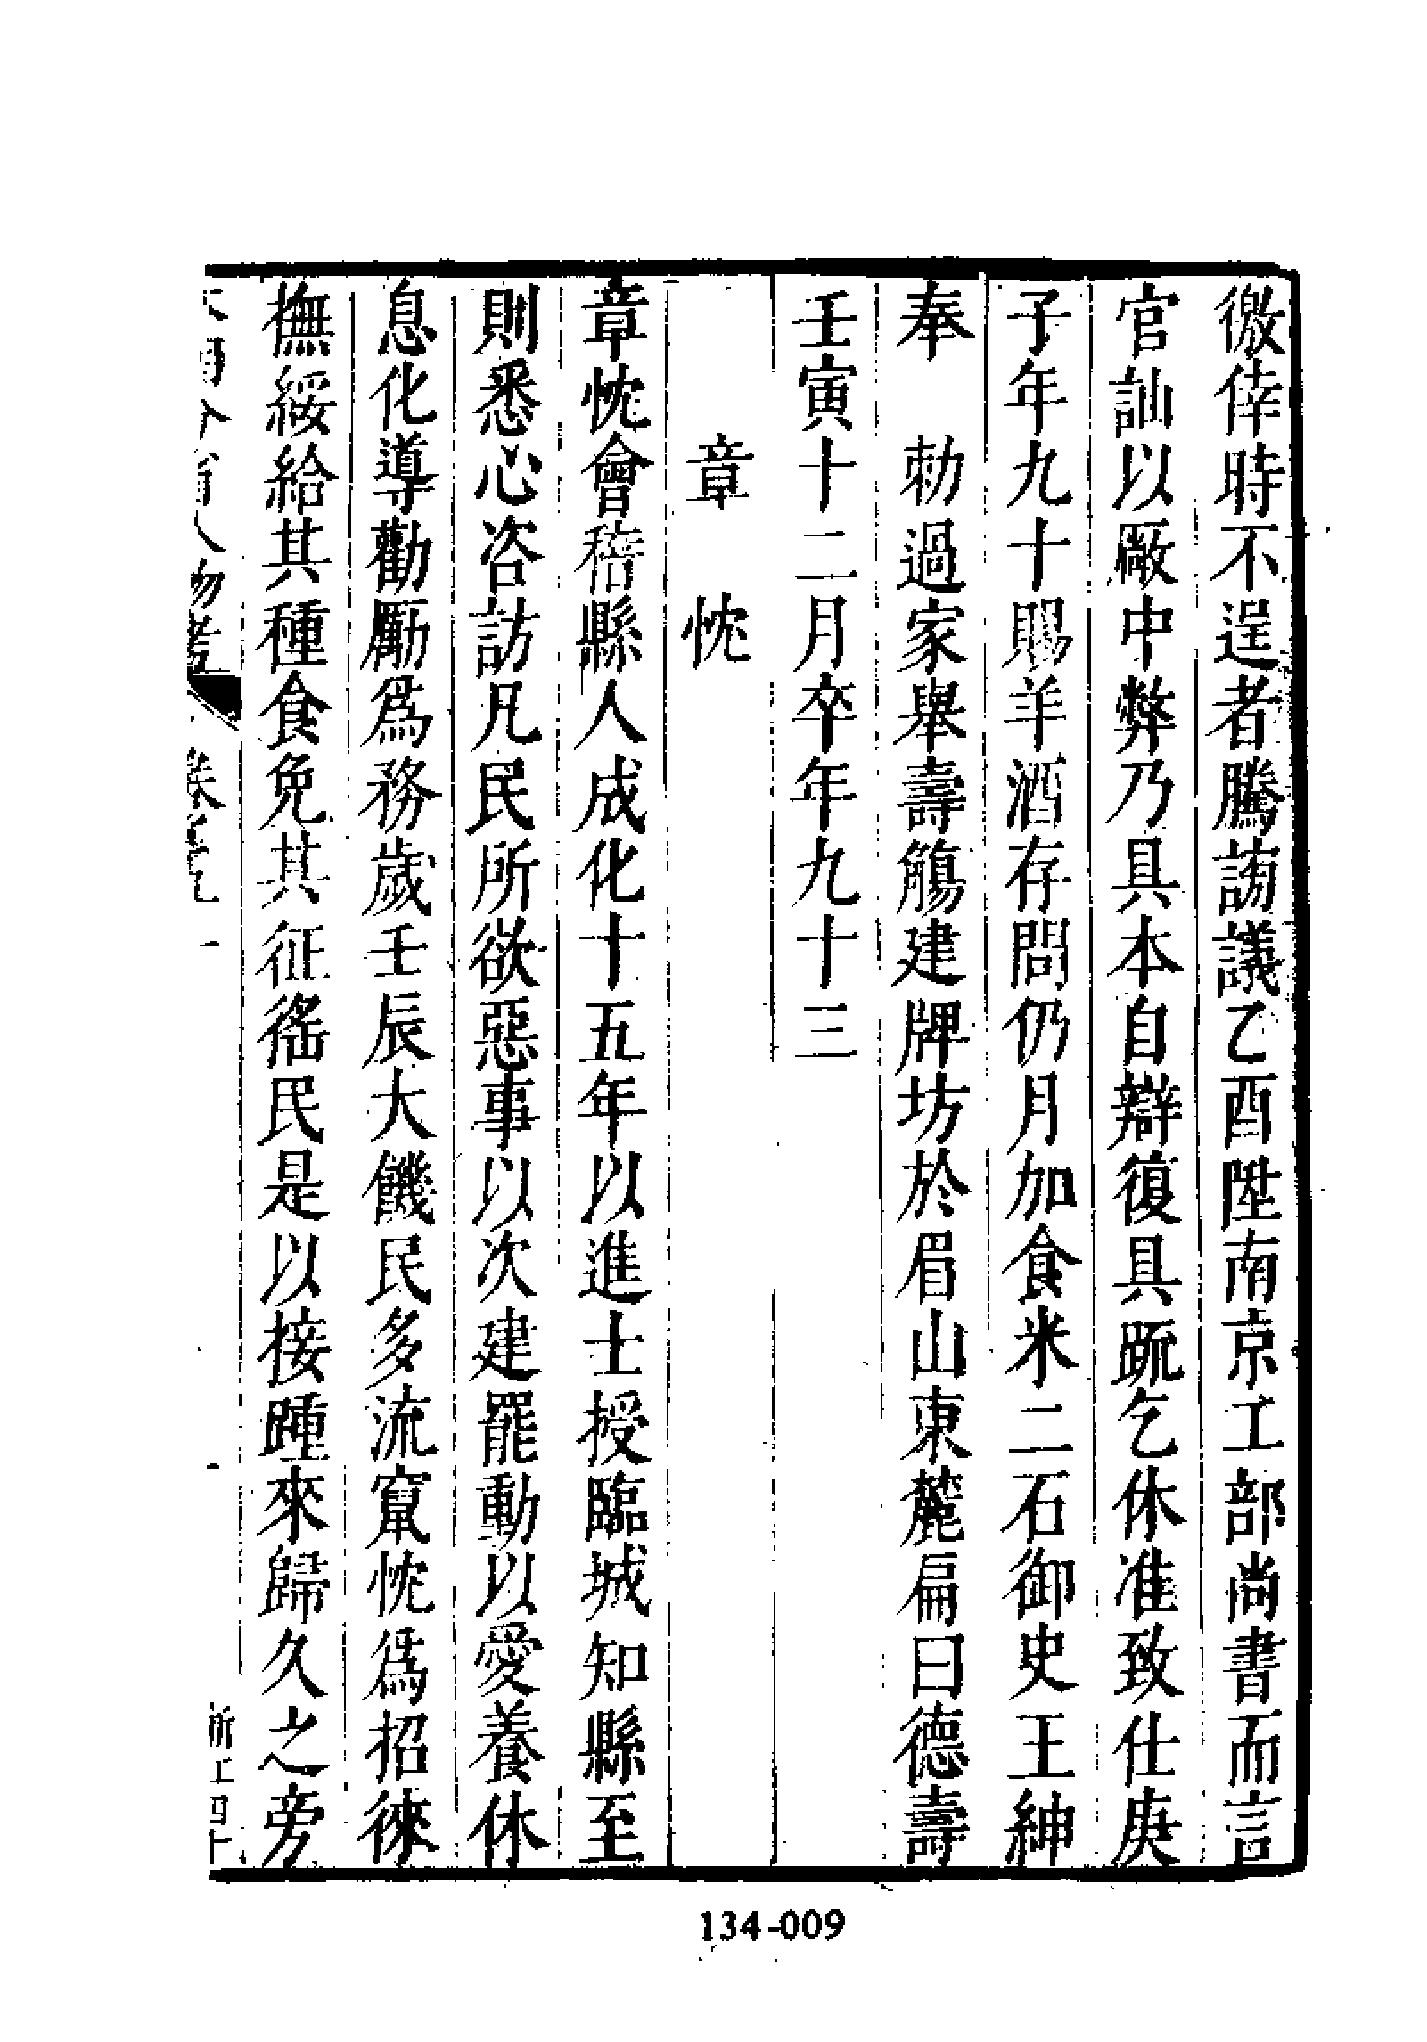 徼倖時不逞者騰謗議乙酉陞南京工部尚書而言
官訕以厰中弊乃具本自辯復具疏乞休准致仕庚
子年九十賜羊酒存問仍月加食米二石御史王紳
奉　勑過家舉壽觴建牌坊於眉山東麓扁曰德壽
壬寅十二月卒年九十三
章　忱
章忱會稽縣人成化十五年以進士授臨城知縣至
則悉心咨訪凡民所欲惡事以次建罷動以愛養休
息化導勸勵爲務歲壬辰大饑民多流竄忱爲招徠
撫綏給其種食免其征徭民是以接踵來歸久之旁
分省人物考
134-009